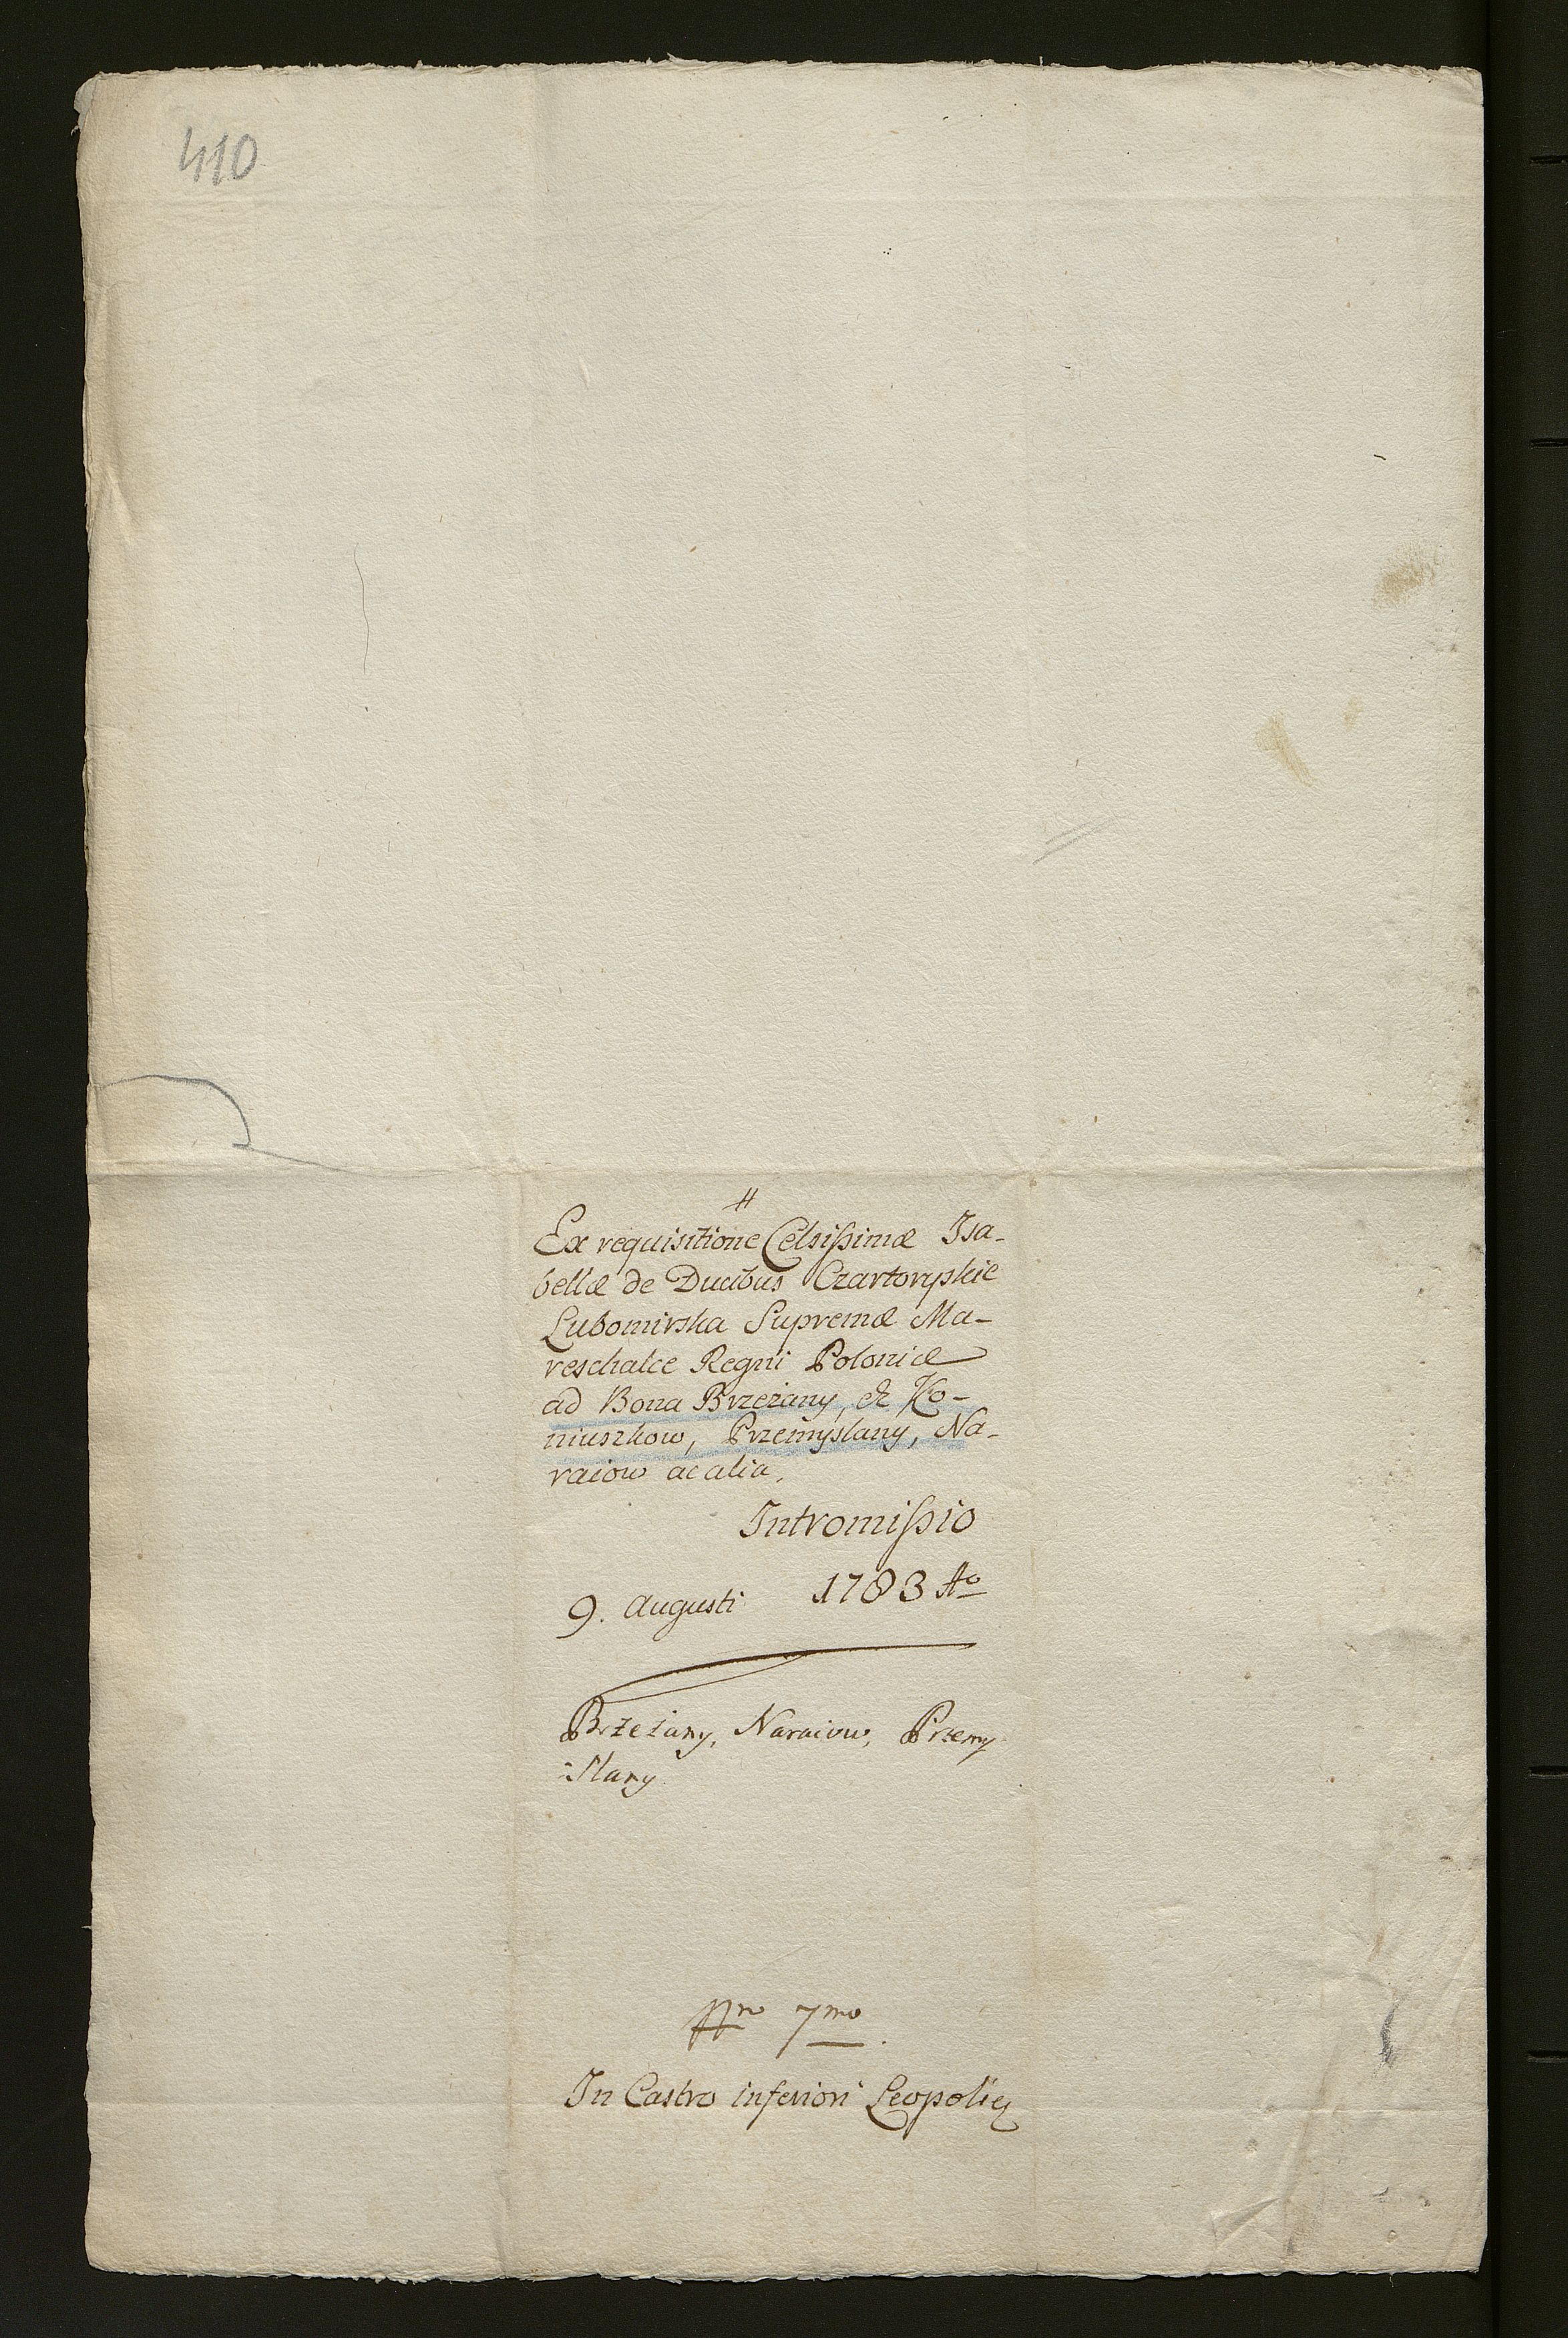 410
#
Ex requisitione Celsissimæ Isa-
bellæ de Ducibus Czartoryskie
Lubomirska Supremæ Ma-
reschalce Regni Poloniæ
ad Bona Brzeżany, et Ko-
niuszkow, Przemyslany, Na-
raiow ac alia.
Intromissio
9. Augusti 1783 Ao
Brzeżany, Naraiow, Przemy
slany
Nro 7mo.
In Castro inferiori Leopolię